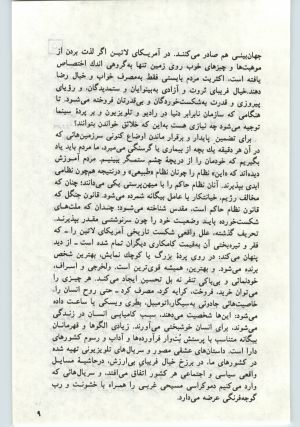 جهان‌بینی هم صادر می‌کنند. در آمریکای لاتین اگر لذت بردن از
موهبت‌ها و چیزهای خوب روی زمین تنها به‌گروهی اندک اختصاص
یافته است، اکثریت مردم بایستی فقط به‌مصرف خواب و خیال رضا
دهند. خیال فریبای ثروت و آزادی به‌بینوایان و ستمدیدگان، و رؤیای
پیروزی و قدرت به‌شکست‌خوردگان و بی‌قدرتان فروخته می‌شود. تا
هنگامی که سازمان نابرابر دنیا در رادیو و تلویزیون و بر پردهٔ سینما
توجیه می‌شود چه نیازی هست به‌این که خلائق خواندن بتوانند؟
برای تضمین پایدار و برقرار ماندن اوضاع کنونی سرزمین‌هائی که
در آن هر دقیقه یک بچه از بیماری یا گرسنگی می‌میرد، ما مردم باید یاد
بگیریم که خودمان را از دریچهٔ چشم ستمگر ببینیم. مردم آموزش
دیده‌اند که «این» نظام را چونان نظام «طبیعی» و درنتیجه همچون نظامی
ابدی بپذیرند. آنان نظام حاکم را با میهن‌پرستی یکی می‌دانند؛ چنان که
مخالف رژیم، خیانتکار یا عامل بیگانه شمرده می‌شود. قانون جنگل که
قانون نظام حاکم است، مقدس شناخته می‌شود؛ چندان که ملت‌های
شکست‌خورده باید وضعیت خود را چون سرنوشتی مقدر بپذیرند.
تحریف گذشته، علل واقعی شکست تاریخی آمریکای لاتین را ــ که
فقر و تیره‌بختی آن به‌قیمت کامکاری دیگران تمام شده است ــ از دید
پنهان می‌کند: در روی پردهٔ بزرگ یا کوچک نمایش، بهترین شخص
برنده می‌شود. و بهترین، همیشه قوی‌ترین است. ولخرجی و اسراف،
خودنمائی و بی‌باکی تنفر نه بل تحسین ایجاد می‌کند. هر چیزی را
می‌توان خرید، فروخت، کرایه کرد، مصرف کرد ــ حتی روح انسان را.
خاصیت‌هائی جادوئی به‌سیگار، اتومبیل، بطری ویسکی یا ساعت داده
می‌شود: این‌ها شخصیت می‌دهند، سبب کامیابی انسان در زندگی
می‌شوند، برای انسان خوشبختی می‌آورند. زیادی الگوها و قهرمانان
بیگانه متناسب با پرستش بُت‌وار فرآورده‌ها و آداب و رسوم کشورهای
دارا است. داستان‌های عشقی مصور و سریال‌های تلویزیونی تهیه شده
در کشورهای ما، در برزخ خیال فریبائی بی‌ارزش، درحاشیهٔ مسایل
واقعی سیاسی و اجتماعی هر کشور اتفاق می‌افتد، و سریال‌هائی که
وارد می‌کنیم دموکراسی مسیحی غربی را همراه با خشونت و رب
گوجه‌فرنگی عرضه می‌دارد.
۹